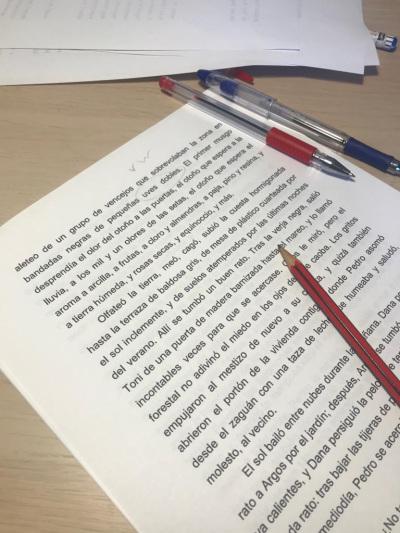 v w
aleteo de un grupo de vencejos que sobrevolaban la zona en
bandadas negras de pequeñas uves dobles. El primer musgo
desprendía el olor del otoño a las puertas, el otoño que espera a la
lluvia, a los mil y un olores de las setas, el otoño que espera el
aroma a arcilla, a frutas, a cloro y almendras, a paja, pino y resina, y
a tierra húmeda, y rosas secas, y equinoccio, y más.
Olfateó la tierra, meó, cagó, subió la cuesta hormigonada
hasta la terraza de baldosa gris, de mesa de plástico cuarteada por
el sol inclemente, y de suelos atemperados por las últimas noches
del verano. Allí se tumbó un buen rato. Tras la verja negra, salió
Toni de una puerta de madera barnizada hasta el mareo, y lo llamó
incontables veces para que se acercase. Argos le miró, pero el
forestal no adivinó el miedo en los ojos de caoba. Los gritos
empujaron al mestizo de nuevo a su y quizá también
abrieron el portón de la vivienda contigua donde Pedro asomó
desde el zaguán con una taza de leche humeaba y saludó,
molesto, al vecino.
El sol bailó entre nubes durante la mañana. Dana
rato a Argos por el jardín; después, Ar se tumbó
va calientes, y Dana persiguió la pelo de ten
da rato: tras bajar las tijeras de p
mediodía, Pedro se acer
¡No t